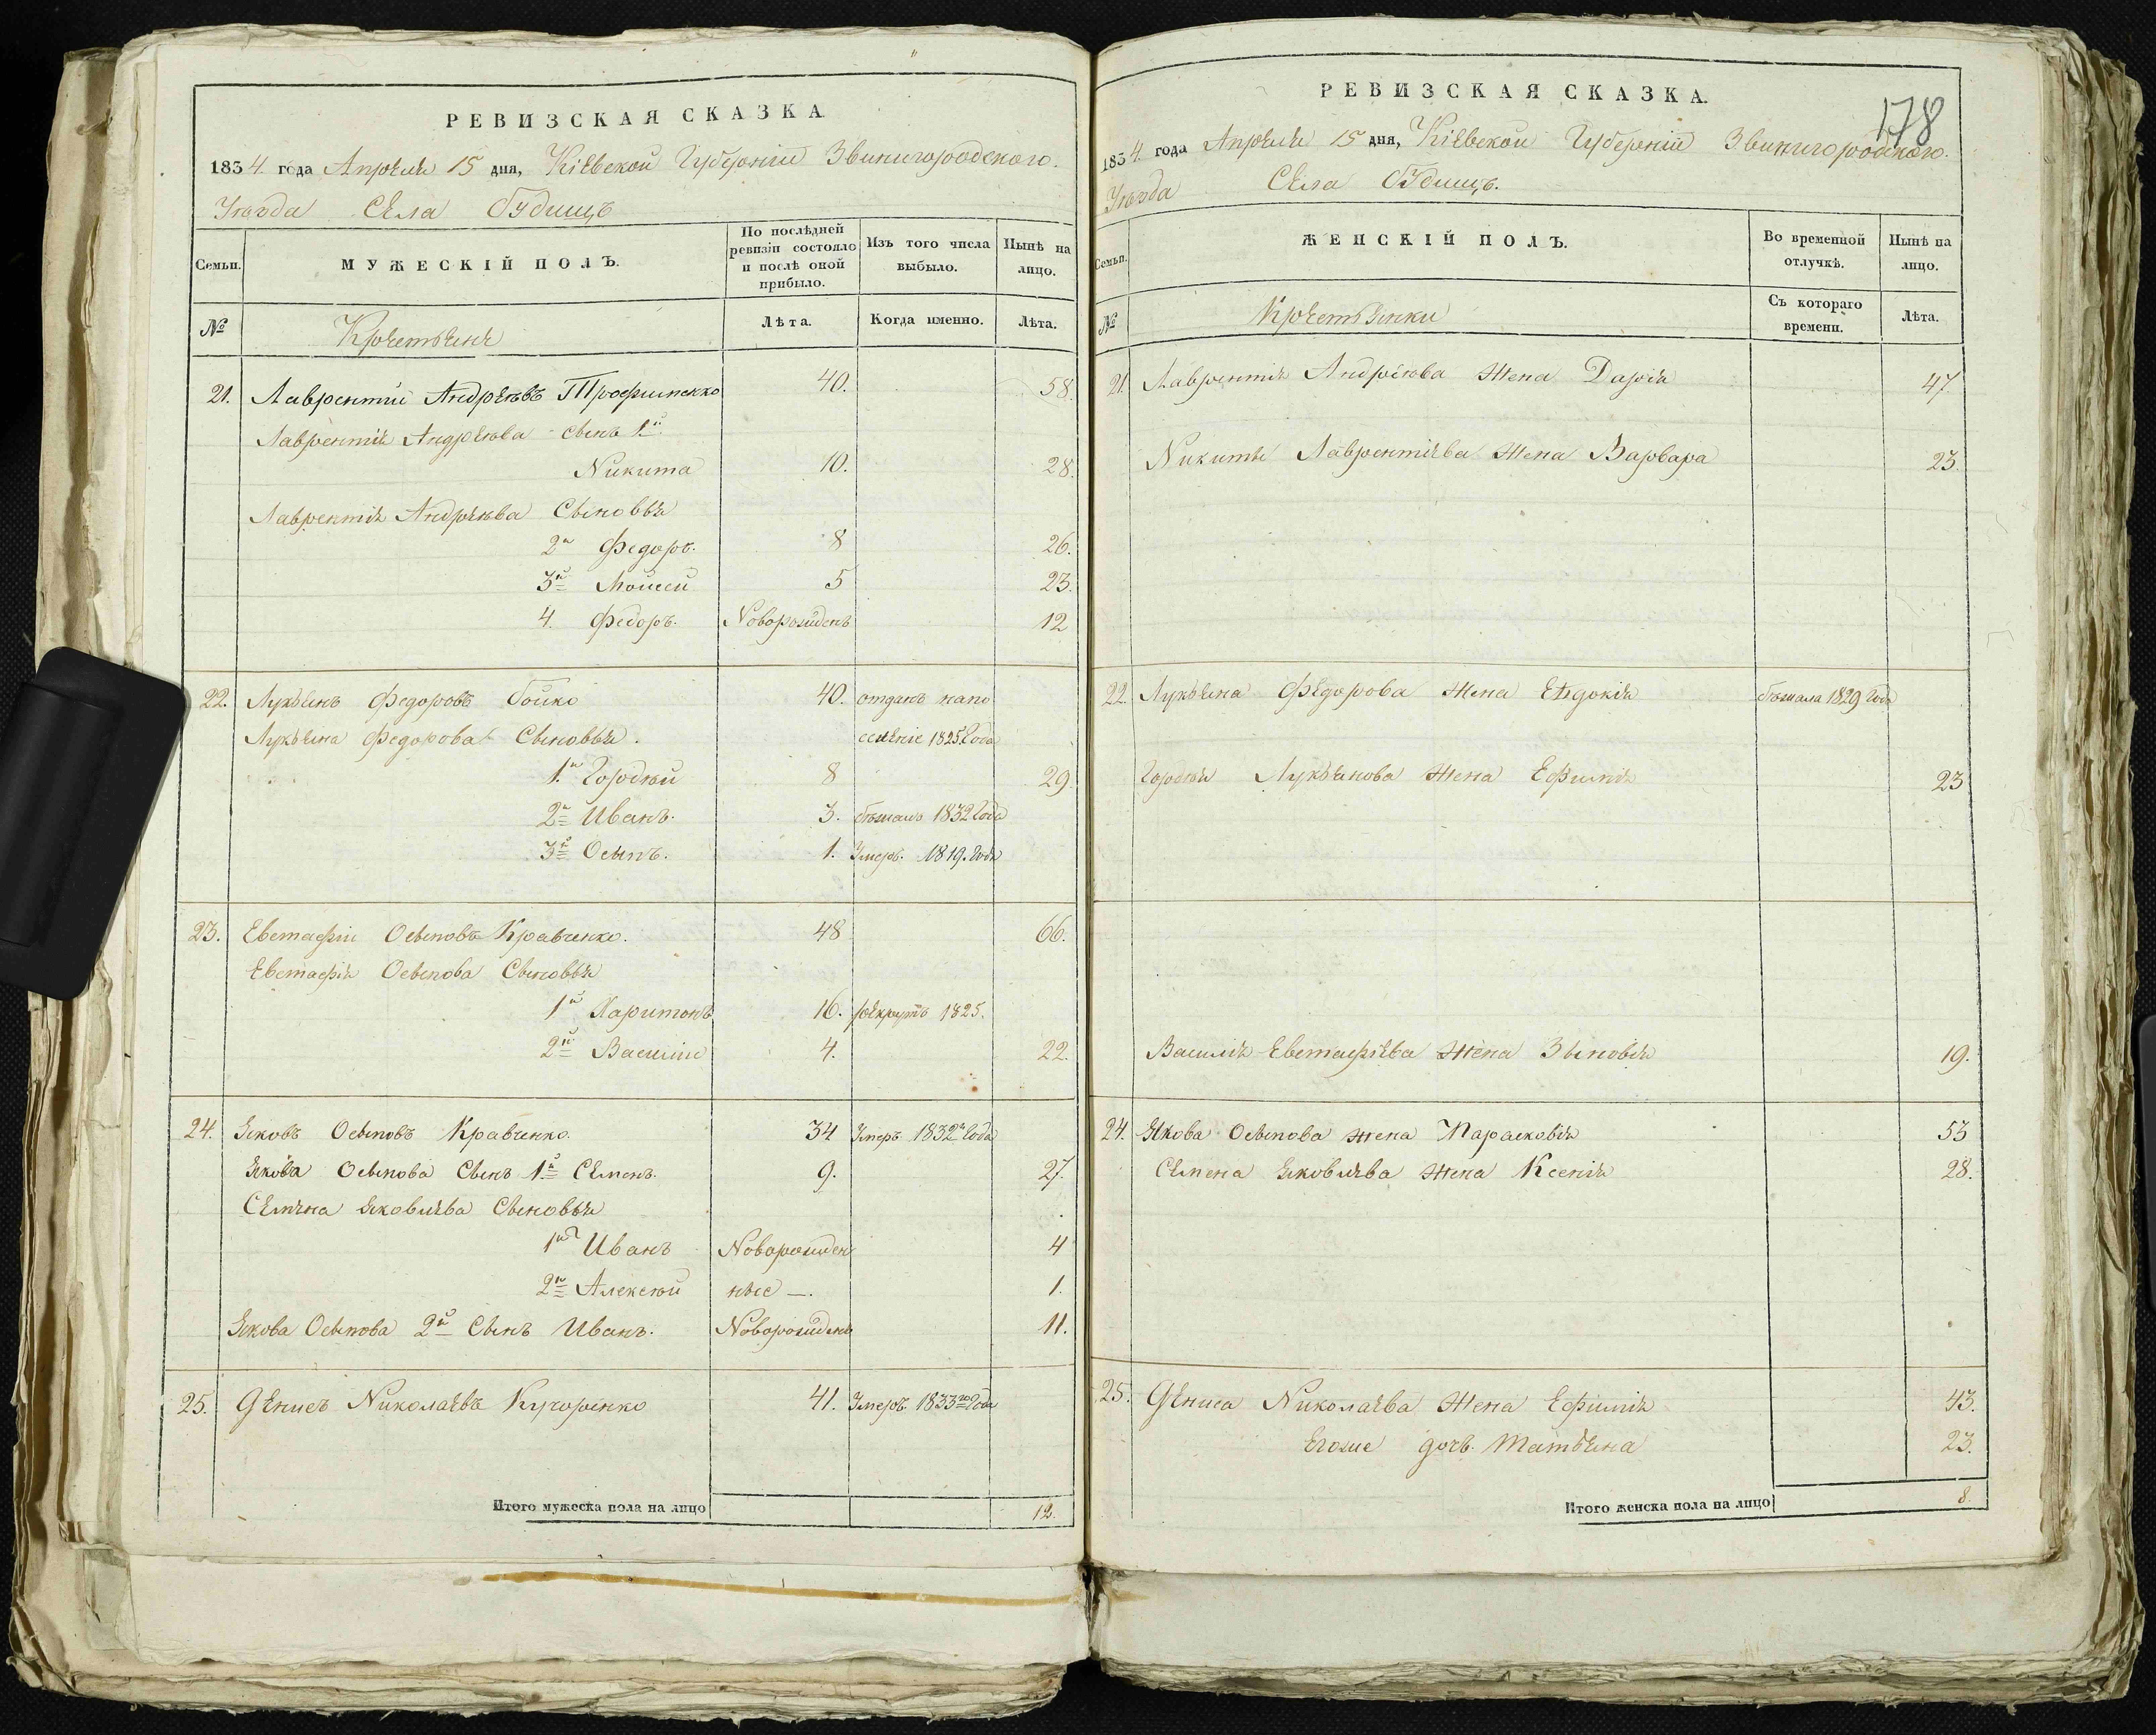 РЕВИЗСКАЯ СКАЗКА
1834. года Апреля 15 дня, Кіевской Губерніи Звинигородского.
Уѣзда Села Будищъ
Семьи.
МУЖЕСКІЙ ПОЛЪ.
По послѣдней ревизіи состояло и послѣ оной прибыло.
Изъ того числа выбыло.
Нынѣ на лицо.
№
Крестьяне
Лѣта.
Когда именно.
Лѣта.
21. Лаврентий Андреевъ Трофименко 40. 58.
Лаврентія Андреева сынъ 1й
Никита 10. 28.
Лаврентія Андреева Сыновья
2й Федоръ. 8 26.
3й Мойсей 5 23.
4. Федоръ. Новорожденъ 12
22. Лукьянъ Федоровъ Бойко 40. отданъ напо
Лукьяна Федорова Сыновья. селеніе 1825 Года
1й Гордѣй 8 29
2й Иванъ. 3. бѣжалъ 1832 Года
3й Осыпъ. 1. Умеръ. 1819. Года
23. Евстафій Осыповъ Кравченко. 48 66.
Евстафія Осыпова Сыновья
1й Харитонъ 16. рекрутъ 1825.
2й Василій 4. 22.
24. Яковъ Осыповъ Кравченко. 34 Умеръ 1832 Года
Якова Осыпова Сынъ 1й Семенъ. 9. 27.
Семена Яковлева Сыновья
1й Иванъ Новорожден 4
2й Алексѣй ные —. 1.
Якова Осыпова 2й Сынъ Иванъ. Новорожденъ 11.
25. Денисъ Николаевъ Кучеренко 41. Умеръ 1833го Года
Итого мужеска пола на лицо 12.
РЕВИЗСКАЯ СКАЗКА.
178
1834. года Апреля 15 дня, Кіевской Губерніи Звинигородского.
Уѣзда Села Будищъ.
Семьи.
ЖЕНСКІЙ ПОЛЪ.
Во временной отлучкѣ.
Нынѣ на лицо.
№
Крестьянки
Съ котораго времени.
Лѣта.
21. Лаврентія Андреева жена Дарія 47.
Никиты Лаврентіева жена Варвара 23.
22. Лукьяна Федорова жена Евдокія бѣжала 1829 Года
Гордѣя Лукьянова жена Ефимія 23
Василія Евстафіева жена Зыновія 19.
24. Якова Осыпова жена Парасковія 53
Семена Яковлева жена Ксенія 28.
25. Дениса Николаева жена Ефимія 43.
Егоже дочь Татьяна 23.
Итого женска пола на лицо 8.